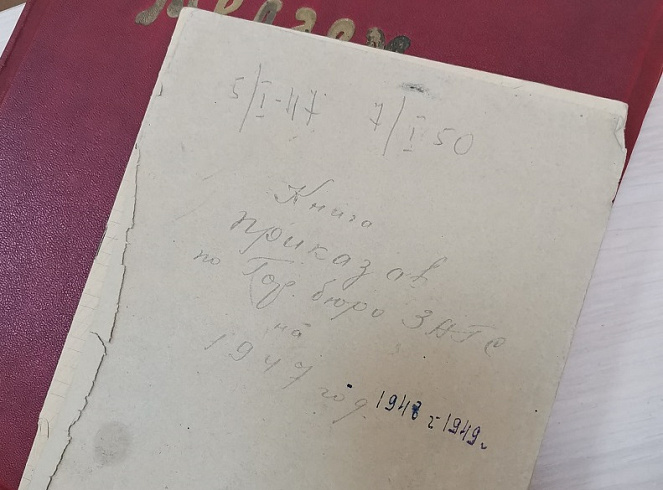 5/I-47 7/I 50
Книга
приказов
по Гор. бюро ЗАГС
на
1947 год 1948 г 1949г